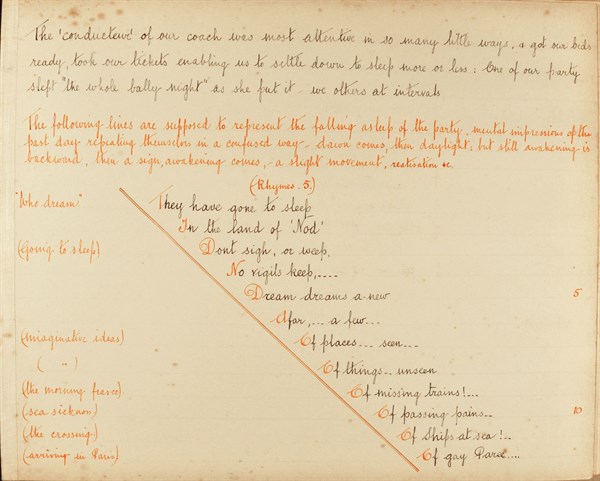 The 'conducteur' of our coach was most attentive in so many little ways, & got our beds
ready, took our tickets enabling us to settle down to sleep more or less: One of our party
slept "the whole bally night" as she put it - we others at intervals
The following lines are supposed to represent the falling asleep of the party, mental impressions of the
past day repeating themselves in a confused way - dawn comes, then daylight; but still awakening is
backward, then a sign, awakening comes, - a slight movement, &c.
(Rhymes. 5.)
"Who dream" They have gone to sleep
In the land of 'Nod'
(Going to sleep) Dont sigh, or weep,
No vigils keep,....
Dream dreams a-new 5
Afar,... a few...
(imaginative ideas) Of places... seen...
( " ) Of things.. unseen
(the morning fiasco) Of missing trains!...
(sea sickness) Of passing pains.. 10
(the crossing) Of ships at sea!..
(arriving in Paris) Of gay Paree....